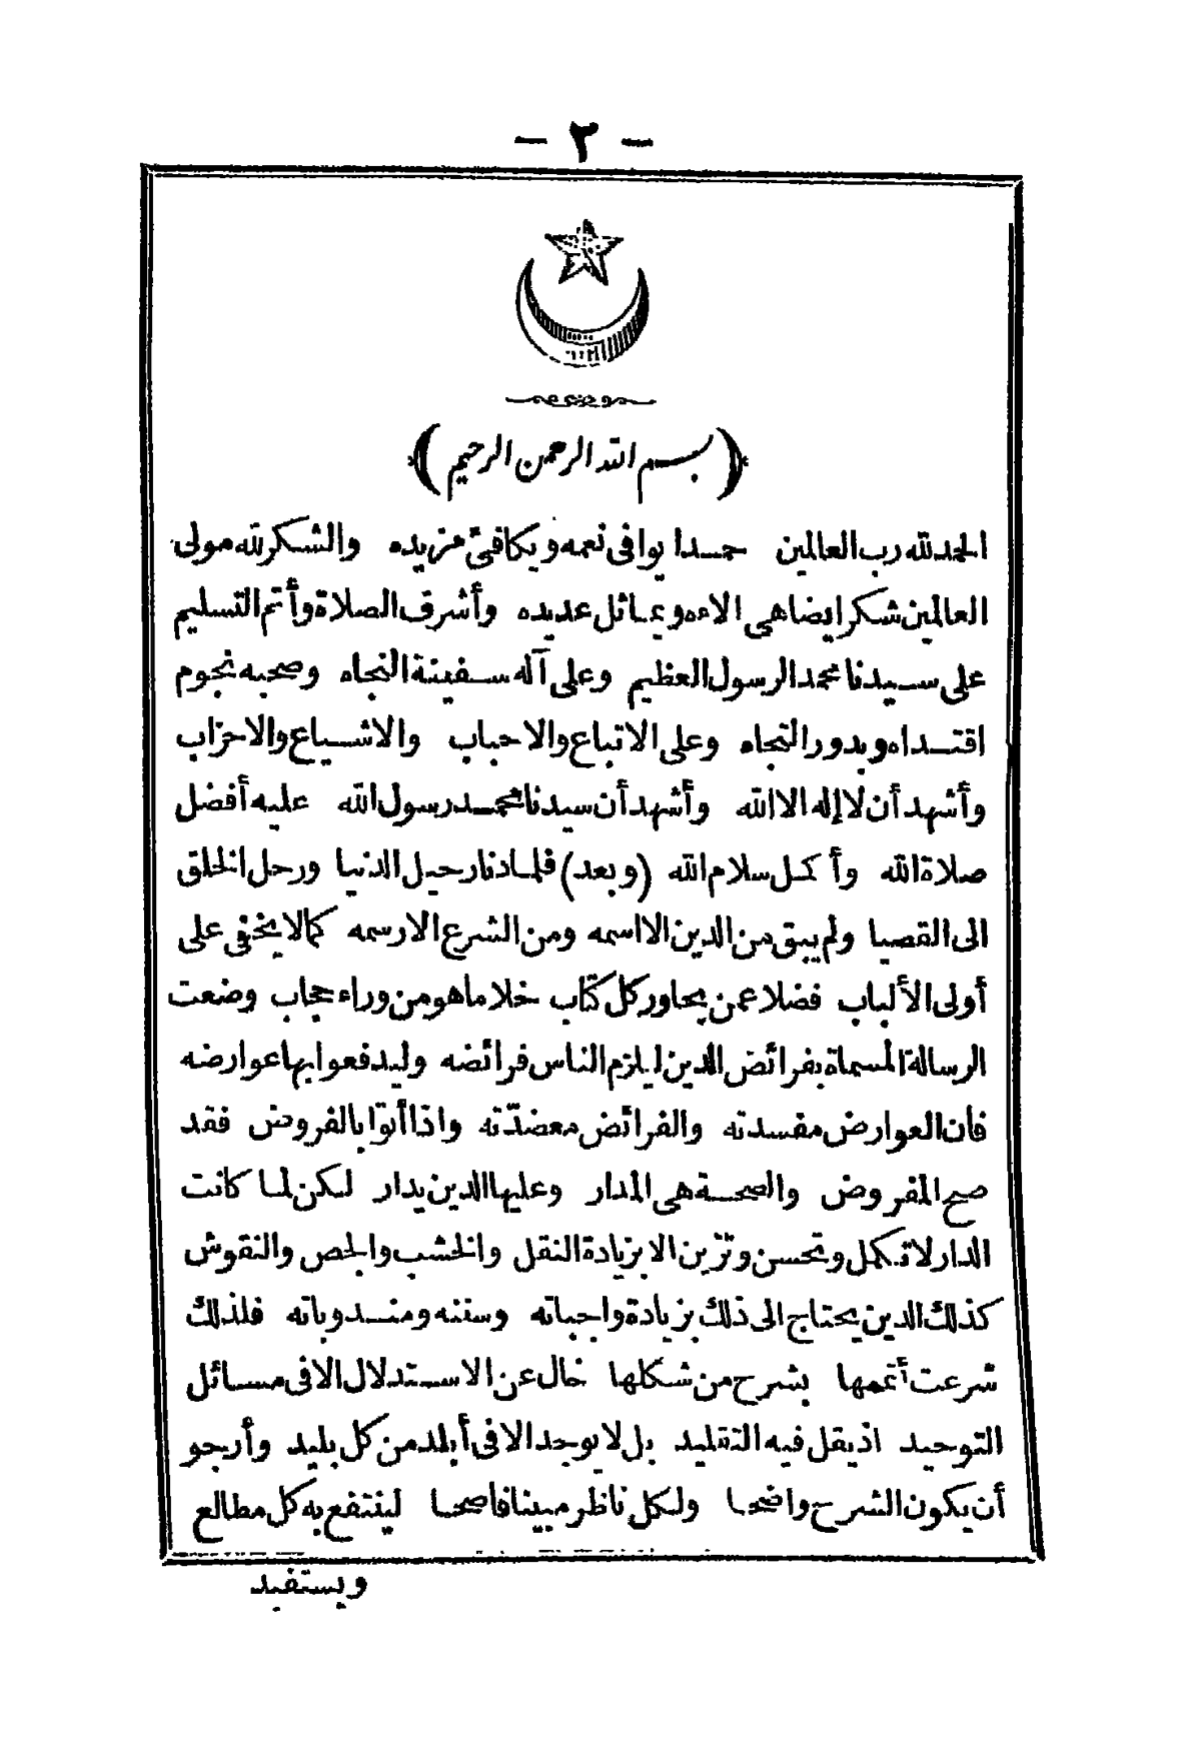 - ٢ -
﴿ بسم الله الرحمن الرحيم ﴾
الحمد لله رب العالمين حمدا يوافى نعمه ويكافئ مزيده والشكر لله مولى
العالمين شكرا يضاهى الاءه ويماثل عديده وأشرف الصلاة وأتم التسليم
على سيدنا محمد الرسول العظيم وعلى آله سفينة النجاه وصحبه نجوم
اقتداه وبدور النجاه وعلى الاتباع والاحباب والاشياع والاحزاب
وأشهد أن لا إله الا الله وأشهد أن سيدنا محمد رسول الله عليه أفضل
صلاة الله وأكمل سلام الله (وبعد) فلما دنا رحيل الدنيا ورحل الخلق
الى القصيا ولم يبق من الدين الا اسمه ومن الشرع الا رسمه كما لا يخفى على
أولى الألباب فضلا عمن يحاور كل كتاب خلا ما هو من وراء حجاب وضعت
الرسالة المسماة بفرائض الدين ليلزم الناس فرائضه وليدفعوا بها عوارضه
فان العوارض مفسدته والفرائض معضدّته واذا أتوا بالفروض فقد
صح المفروض والصحة هى المدار وعليها الدين يدار لكن لما كانت
الدار لا تكمل وتحسن وتزين الا بزيادة النقل والخشب والجص والنقوش
كذلك الدين يحتاج الى ذلك بزيادة واجباته وسننه ومندوباته فلذلك
شرعت أتممها بشرح من شكلها خال عن الاستدلال الا فى مسائل
التوحيد اذ يقل فيه التقليد بل لا يوجد الا فى أبلد من كل بليد وأرجو
أن يكون الشرح واضحا ولكل ناظر مبينا فاصحا لينتفع به كل مطالع
ويستفيد